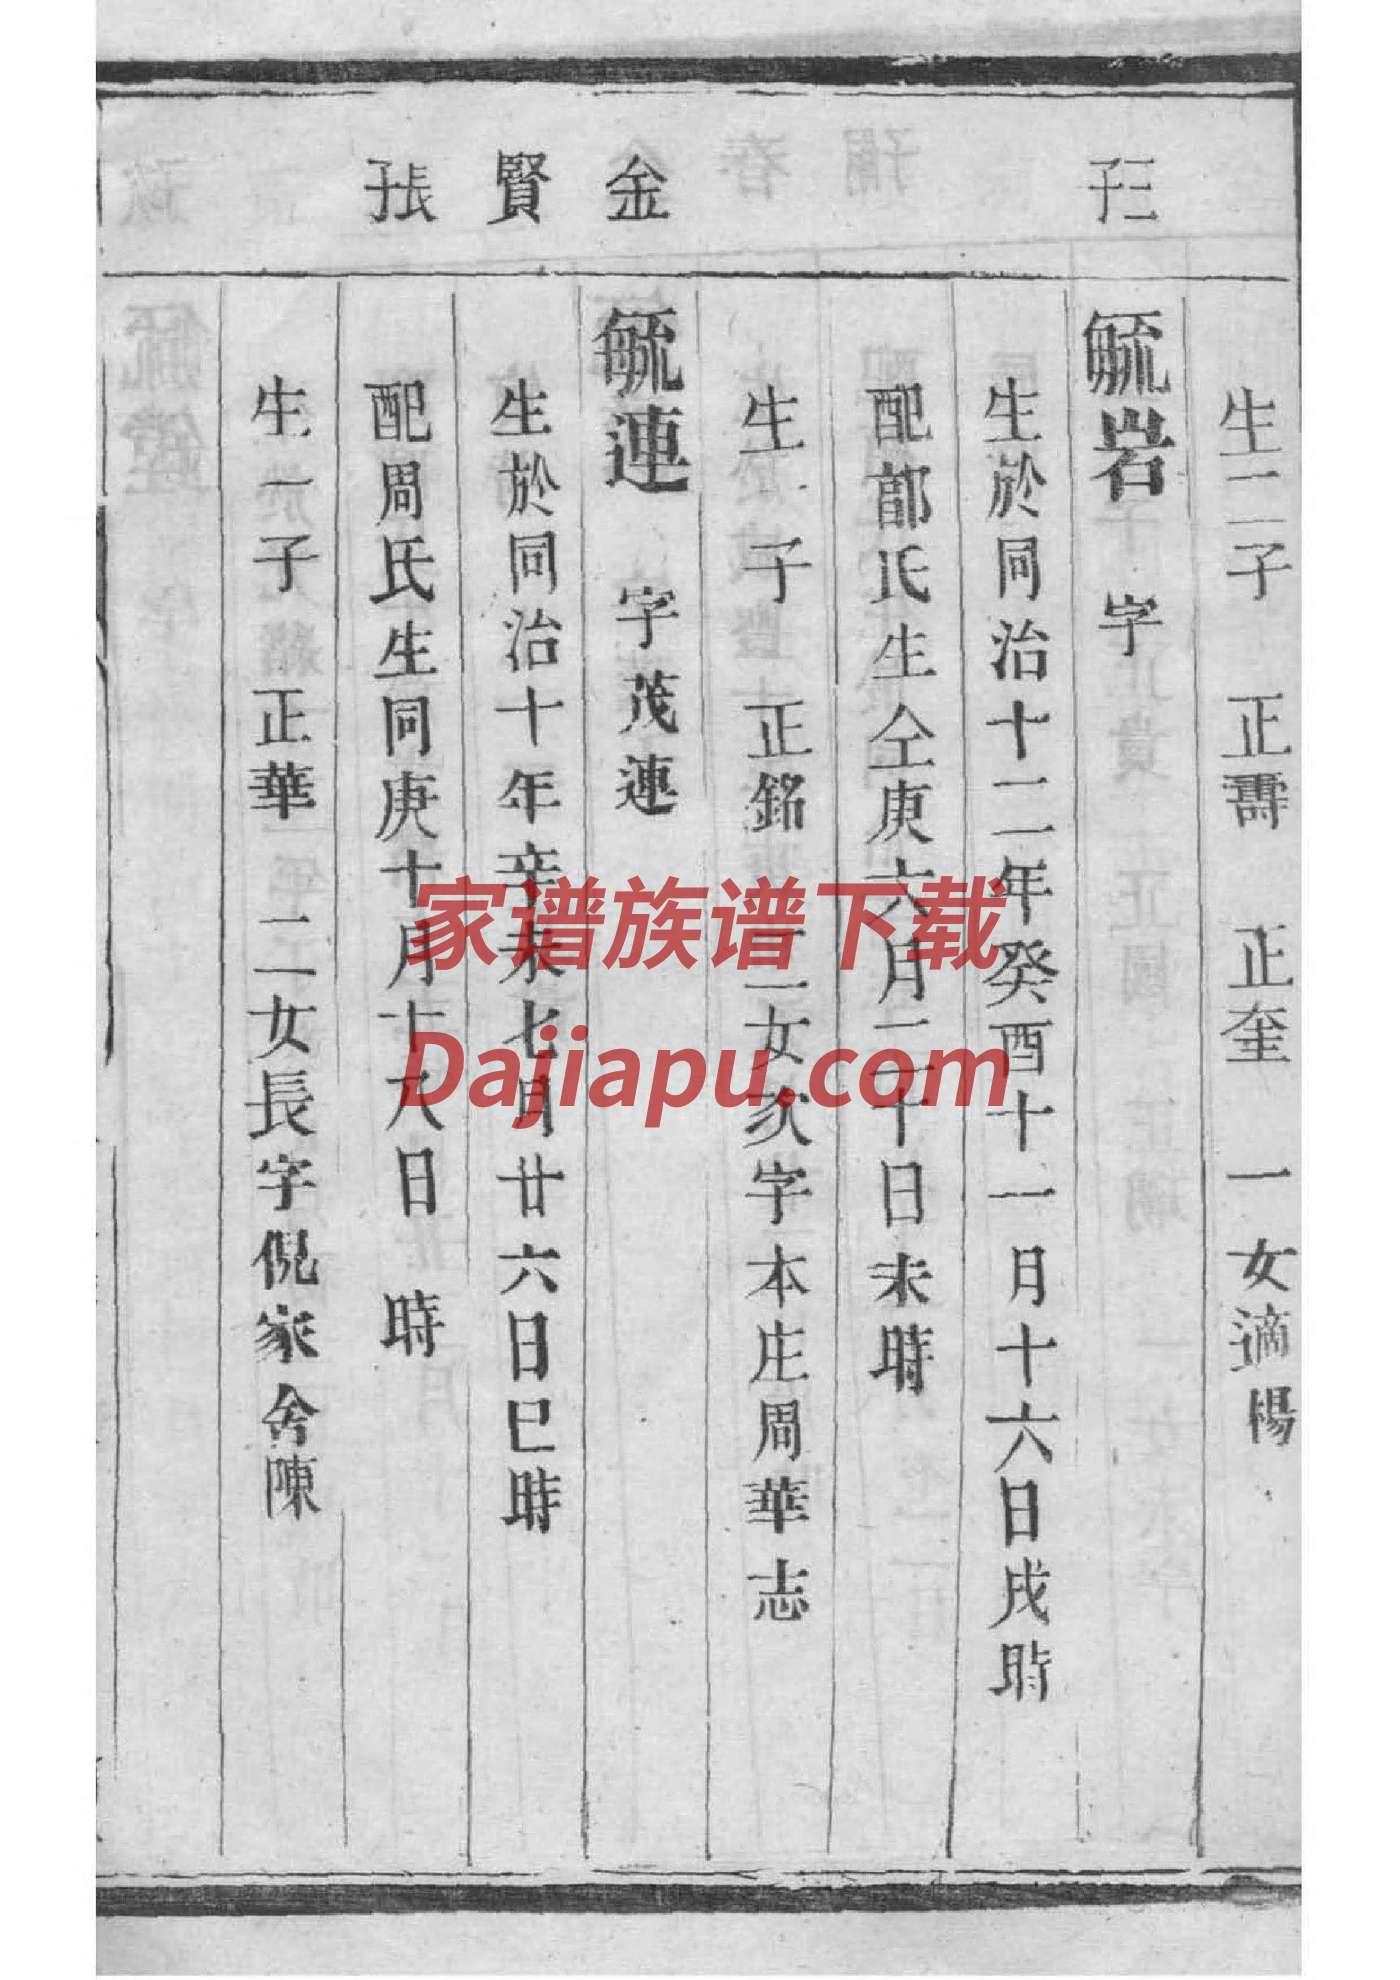 三子
金
賢
長子
生二子 正壽 正奎 一女適楊
毓岩 字
生於同治十二年癸酉十一月十六日戌時
配部氏生仝庚六月二十日未時
生 子 正銘 二女次字本庄周華志
毓連 字茂連
生於同治十年辛未七月廿六日巳時
配周氏生同庚十月十八日 時
生一子 正華 二女長字倪家舍陳
家谱族谱下载
Dajiapu.com